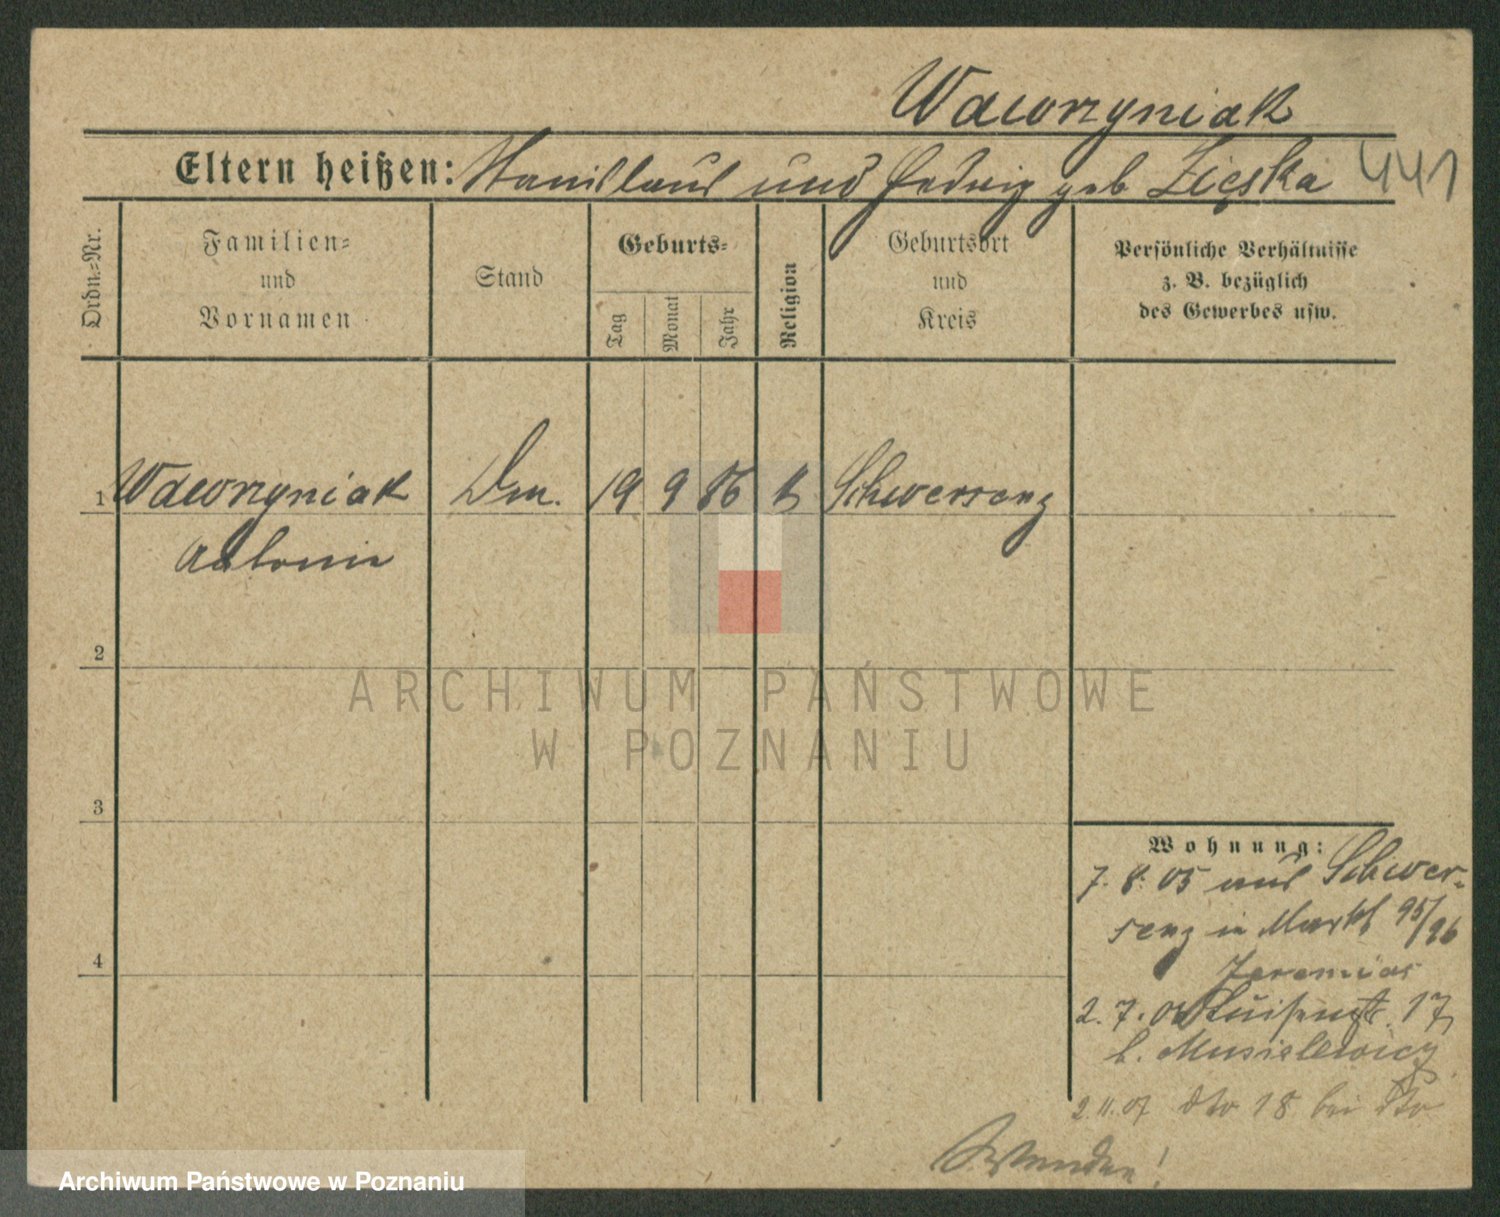 Wawrzyniak
Eltern heißen: Stanislaus und Hedwig geb Zięska 441
Ordn.-Nr.
Familien-
und
Vornamen
Stand
Geburts-
Tag
Monat
Jahr
Religion
Geburtsort
und
Kreis
Persönliche Verhältnisse
z. B. bezüglich
des Gewerbes usw.
1 Wawrzyniak 19 9 86 k Schwersenz
Antonie
2
3
4
Wohnung:
7. 8. 05 aus Schwer-
senz in Markt 95/96
Jeremias
2. 7. Luisenstr. 17
b. Musielewicz
2.11.07 dto 18 bei dto
Wenden!
ARCHIWUM PAŃSTWOWE
W POZNANIU
Archiwum Państwowe w Poznaniu